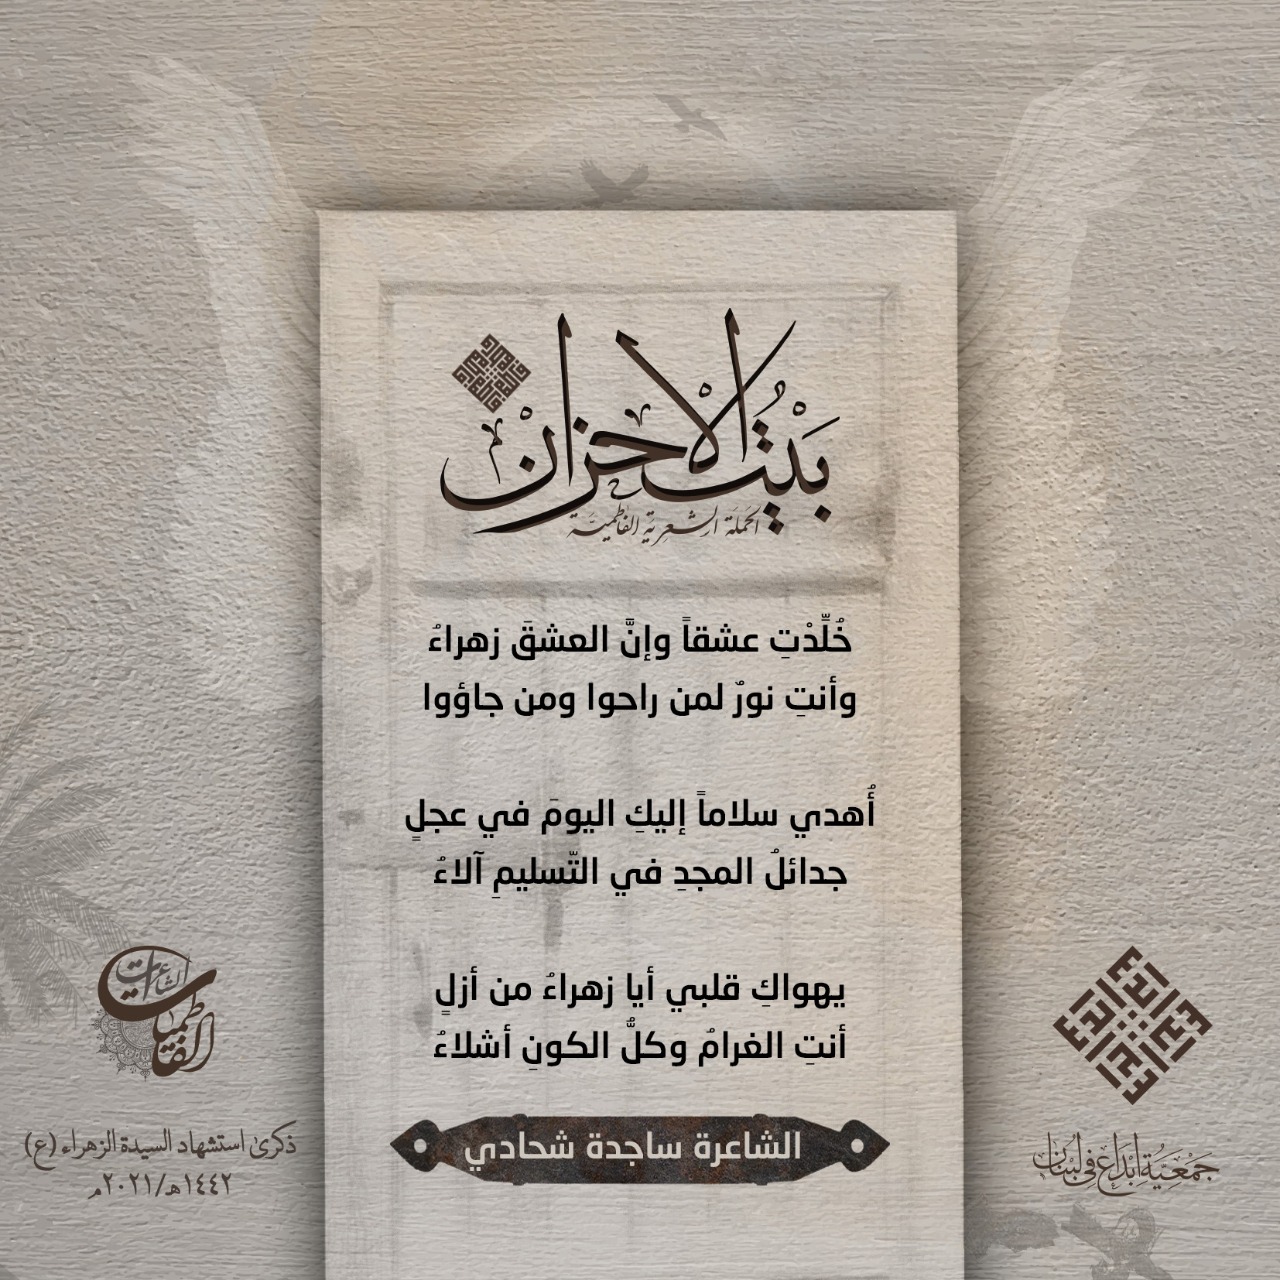 بَيْتُ الأحزانْ
الحملة الشعرية الفاطميّة
خُلِّدْتِ عشقاً وإنَّ العشقَ زهراءُ
وأنتِ نورٌ لمن راحوا ومن جاؤوا
أُهدي سلاماً إليكِ اليومَ في عجلٍ
جدائلُ المجدِ في التّسليمِ آلاءُ
يهواكِ قلبي أيا زهراءُ من أزلٍ
أنتِ الغرامُ وكلُّ الكونِ أشلاءُ
الشاعرة ساجدة شحادي
الشاعرات
الفاطميات
ذكرى استشهاد السيدة الزهراء (ع)
١٤٤٢هـ/٢٠٢١م
جمعيّة إبداع في لبنان